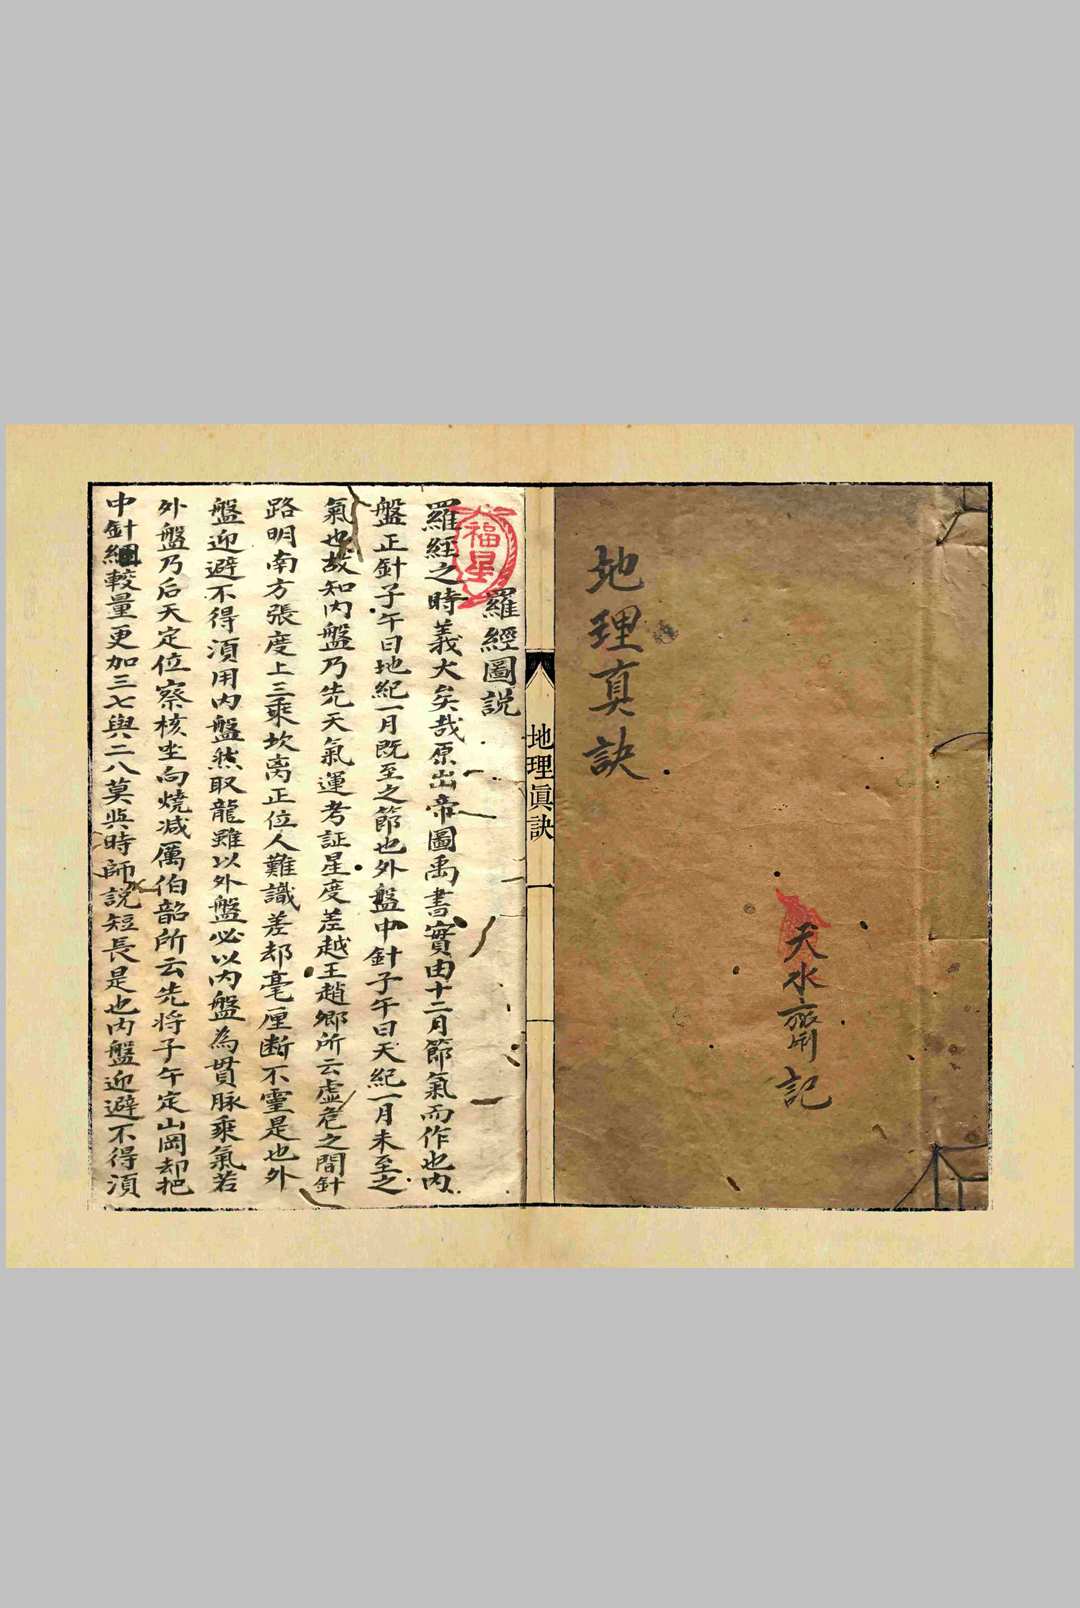 地理真訣
天水齋記
地理眞訣
一
福星
羅經圖説
羅經之時義大矣哉原出帝圖禹書實由十二月節氣而作也内
盤正針子午曰地紀一月既至之節也外盤中針子午曰天紀一月未至之
氣也故知内盤乃先天氣運考証星度差越王趙鄉所云虛危之間針
路明南方張度上三乘坎离正位人難識差却毫厘断不靈是也外
盤迎避不得湏用内盤然取龍雖以外盤必以内盤為貫脉乘氣若
外盤乃后天定位察核坐向燒减厲伯韶所云先将子午定山岡却把
中針細較量更加三七與二八莫與時師説短長是也内盤迎避不得湏